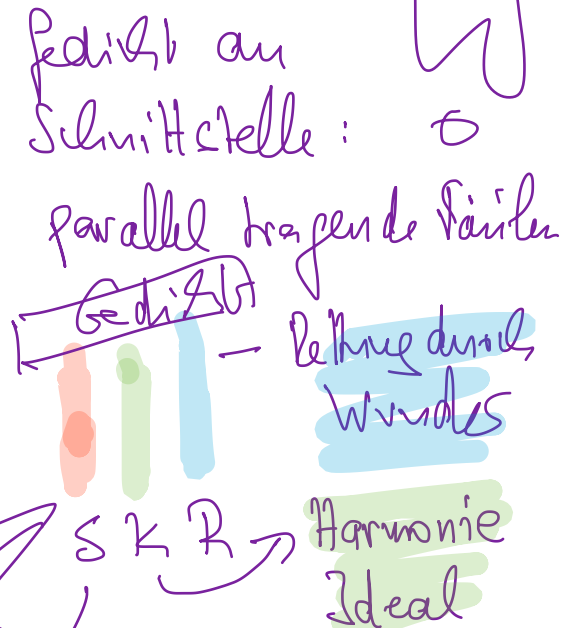 Gedicht an
Schnittstelle:
parallel tragende Säulen
Gedicht
- Rettung durch
Wunder
S K R
Harmonie
Ideal